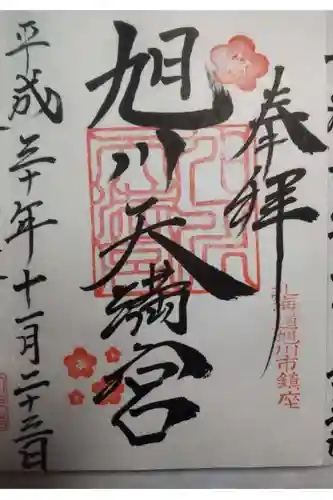 奉拝
北海道旭川市鎮座
旭川天満宮
平成三十年十一月二十三日